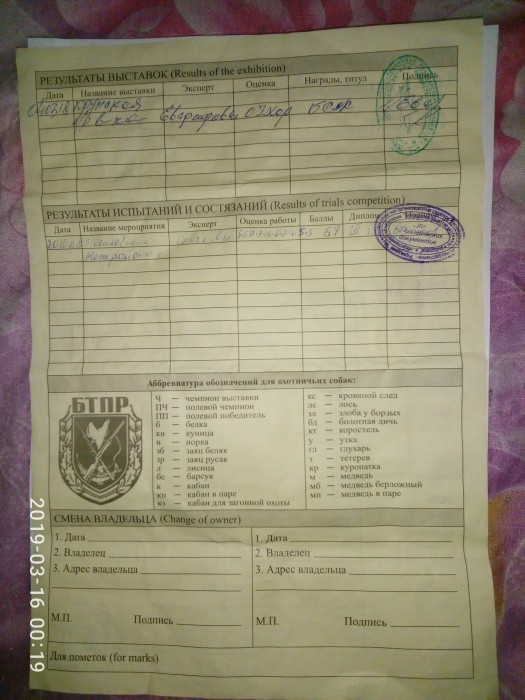 РЕЗУЛЬТАТЫ ВЫСТАВОК (Results of the exhibition)
Дата Название выставки Эксперт Оценка Награды, титул Подпись
Евграфова
РЕЗУЛЬТАТЫ ИСПЫТАНИЙ И СОСТЯЗАНИЙ (Results of trials competition)
Дата Название мероприятия Эксперт Оценка работы Баллы Диплом
67 III
документов
Аббревиатура обозначений для охотничьих собак:
БТПР
Ч — чемпион выставки
ПЧ — полевой чемпион
ПП — полевой победитель
б — белка
кн — куница
н — норка
зб — заяц беляк
зр — заяц русак
л — лисица
бс — барсук
к — кабан
кп — кабан в паре
кз — кабан для загонной охоты
кс — кровяной след
лс — лось
зл — злоба у борзых
бд — болотная дичь
кт — коростель
у — утка
гл — глухарь
т — тетерев
кр — куропатка
м — медведь
мб — медведь берложный
мп — медведь в паре
СМЕНА ВЛАДЕЛЬЦА (Change of owner)
1. Дата
2. Владелец
3. Адрес владельца
М.П. Подпись
1. Дата
2. Владелец
3. Адрес владельца
М.П. Подпись
Для пометок (for marks)
2019-03-16 00:19